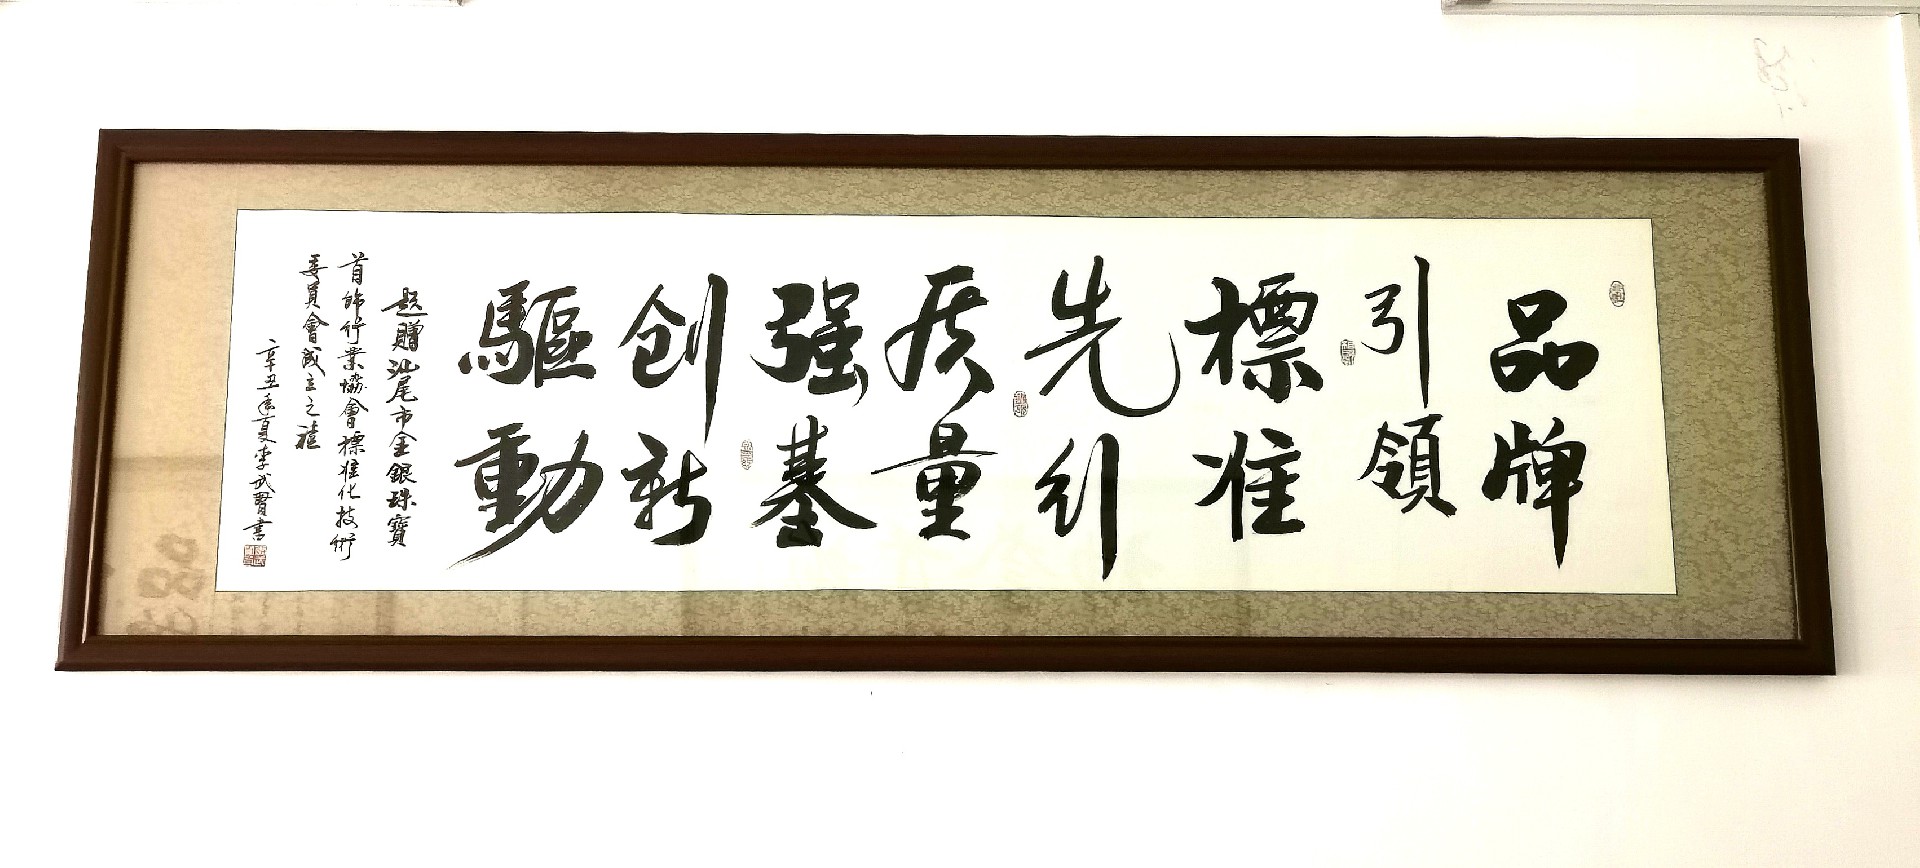 品牌
引領
標准
先行
质量
强基
创新
驅動
題贈汕尾市金銀珠寶
首飾行業協會標准化技術
委員會成立之禧
辛丑年夏李武賢書